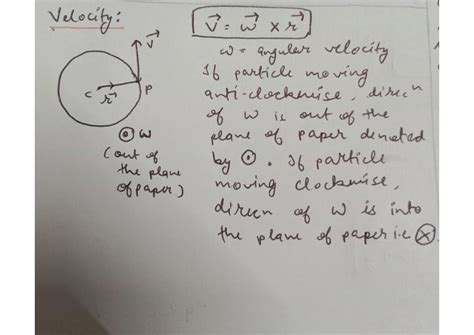 Velocity:
V⃗ = w⃗ × r⃗
V⃗
C r⃗ P
⊙ w
(out of
the plane
of paper)
w = angular velocity
If particle moving
anti-clockwise, direcn
of w is out of the
plane of paper denoted
by ⊙. If particle
moving clockwise,
direcn of w is into
the plane of paper i.e ⊗